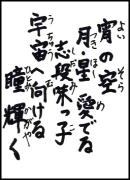 よい そら
宵の空
つき ほし め
月・星愛でる
しだみ こ
志段味っ子
うちゅう む
宇宙へ向ける
ひとみ かがや
瞳輝く